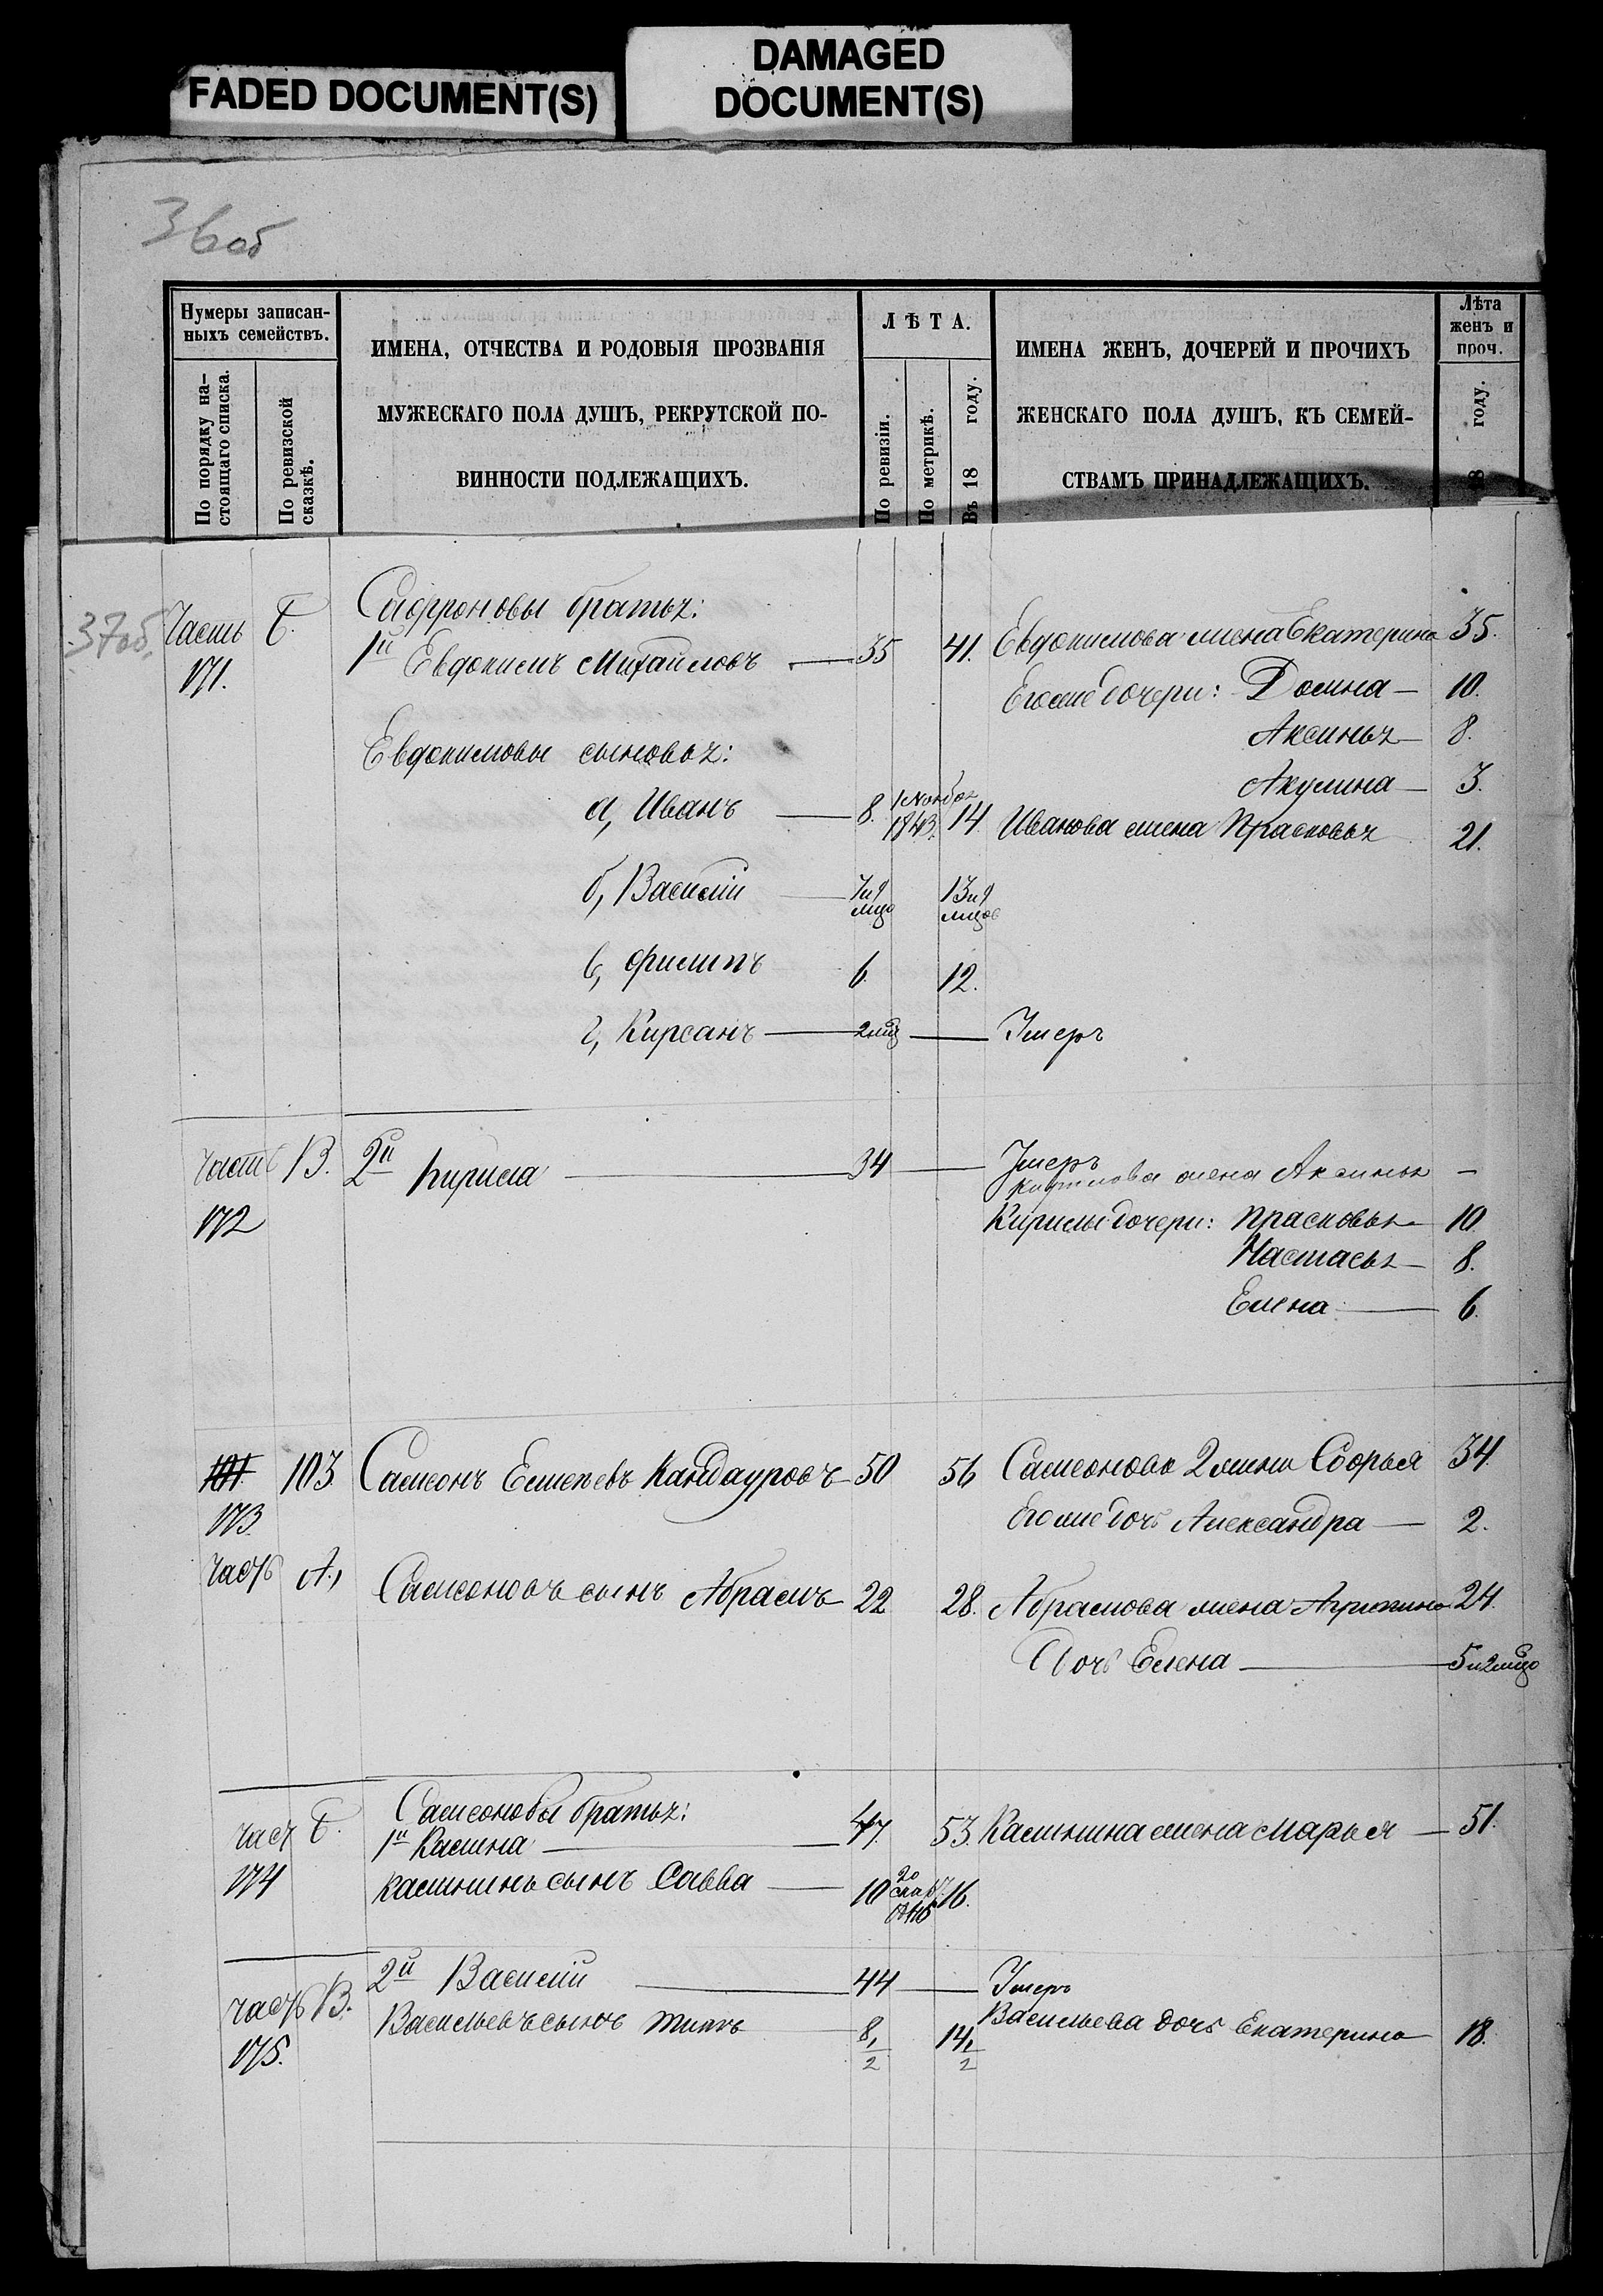 FADED DOCUMENT(S)
DAMAGED
DOCUMENT(S)
36об
Нумеры записан-
ныхъ семействъ.
По порядку на-
стоящаго списка.
По ревизской
сказкѣ.
ИМЕНА, ОТЧЕСТВА И РОДОВЫЯ ПРОЗВАНІЯ
МУЖЕСКАГО ПОЛА ДУШЪ, РЕКРУТСКОЙ ПО-
ВИННОСТИ ПОДЛЕЖАЩИХЪ.
ЛѢТА.
По ревизіи.
По метрикѣ.
Въ 18 году.
ИМЕНА ЖЕНЪ, ДОЧЕРЕЙ И ПРОЧИХЪ
ЖЕНСКАГО ПОЛА ДУШЪ, КЪ СЕМЕЙ-
СТВАМЪ ПРИНАДЛЕЖАЩИХЪ.
Лѣта
женъ и
проч.
18 году.
37об.
Часть Б. Сафроновы братья:
171. 1й Евдокимъ Михайловъ — 35 41. Евдокимова жена Екатерина 35.
Егоже дочери: Домна — 10.
Евдокимовы сыновья: Аксинья — 8.
Акулина — 3.
а, Иванъ — 8. 1 Ноября 1843. 14 Иванова жена Прасковья 21.
б, Василій — 7и9 мцо 13и9 мцов
в, Филипъ 6. 12.
г, Кирсанъ — 2мц — Умеръ
Часть В. 2й Кирила — 34 — Умеръ
Кирилова жена Аксинья —
172 Кирилы дочери: Прасковья — 10.
Настасья — 8.
Елена — 6.
101. 103. Самсонъ Кандауровъ 50 56 Самсонова 2 жена 34.
173 Егоже дочь Александра — 2.
Часть А., Самсоновъ сынъ Абрамъ 22 28. Абрамова жена Агрипина 24.
Дочь Елена — 5и2мцо
Самсоновы братья:
Часть Б. 1й Калина — 47. 53. Калинина жена Марья — 51.
174 Калининъ сынъ Савва — 10 20 16.
2й Василій — 44 — Умеръ
Часть В. Васильевъ сынъ 8 1/2 14 1/2 Васильева дочь Екатерина 18.
175.